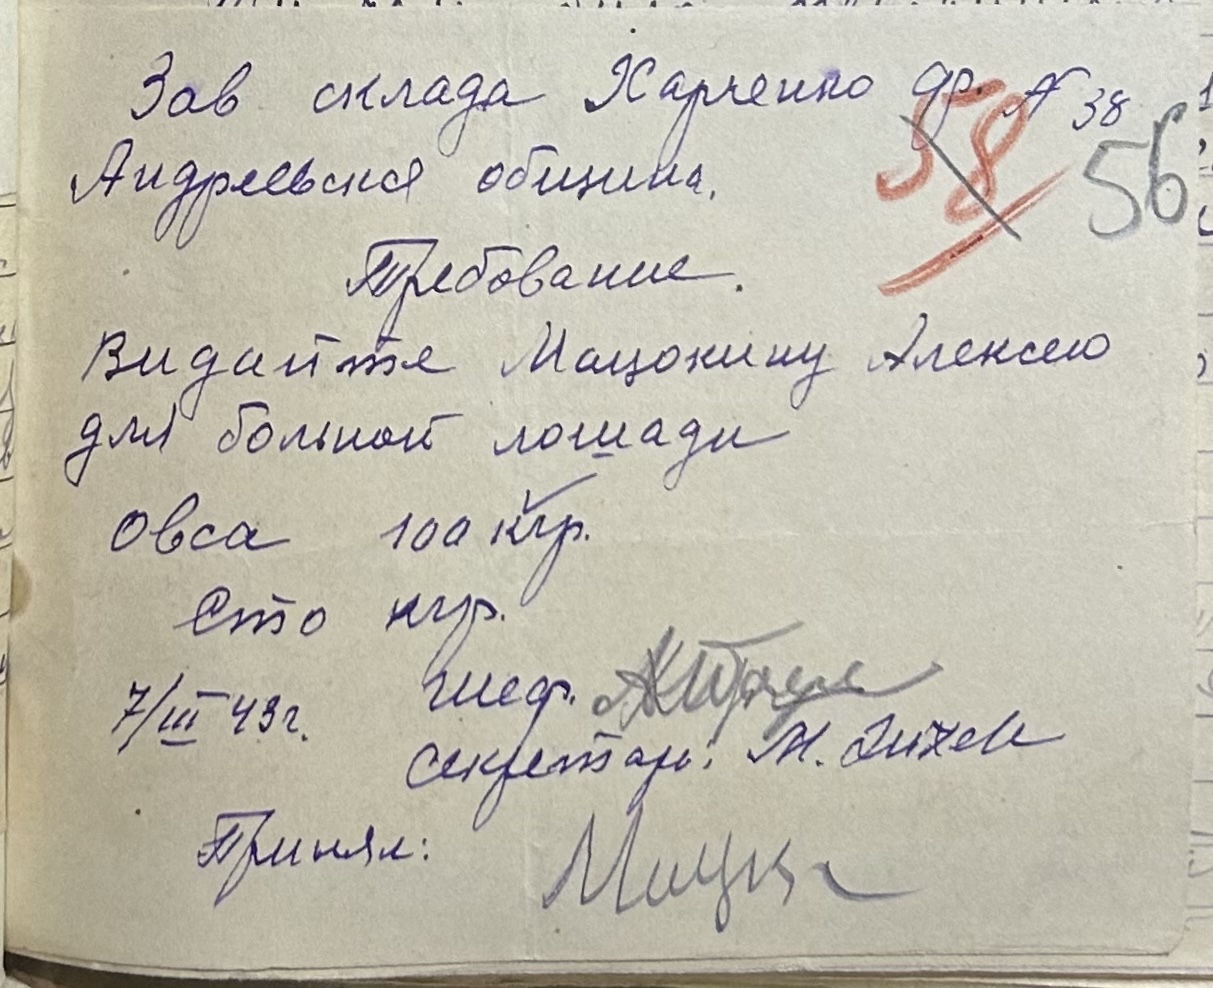 Зав склада Харченко др. № 38
58 56
Андреевская община.
Требование.
Видайте Мацокину Алексею
для больной лошади
Овса 100 кгр.
Сто кгр.
7/III 43 г. Шеф.
Секретарь: М.
Принял: